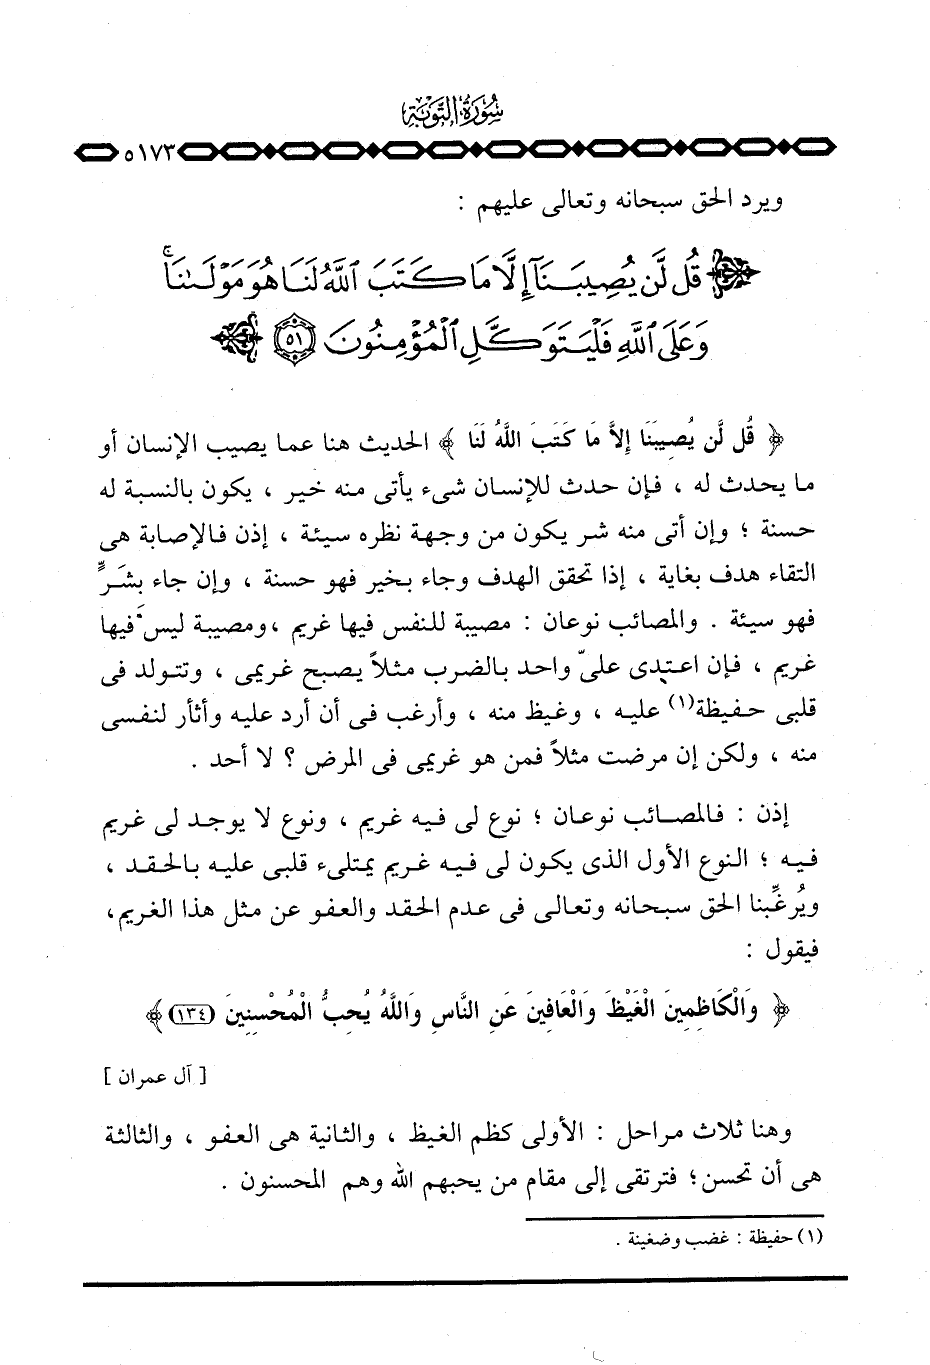 سُورَةُ التَّوْبَةِ
٥١٧٣
ويرد الحق سبحانه وتعالى عليهم :
﴿ قُل لَّن يُصِيبَنَآ إِلَّا مَا كَتَبَ ٱللَّهُ لَنَا هُوَ مَوْلَىٰنَا ۚ
وَعَلَى ٱللَّهِ فَلْيَتَوَكَّلِ ٱلْمُؤْمِنُونَ ٥١ ﴾
﴿ قُل لَّن يُصِيبَنَا إِلاَّ مَا كَتَبَ اللَّهُ لَنَا ﴾ الحديث هنا عما يصيب الإنسان أو
ما يحدث له ، فإن حدث للإنسان شىء يأتى منه خير ، يكون بالنسبة له
حسنة ؛ وإن أتى منه شر يكون من وجهة نظره سيئة ، إذن فالإصابة هى
التقاء هدف بغاية ، إذا تحقق الهدف وجاء بخير فهو حسنة ، وإن جاء بشَرٍّ
فهو سيئة . والمصائب نوعان : مصيبة للنفس فيها غريم ، ومصيبة ليس فيها
غريم ، فإن اعتدى علىّ واحد بالضرب مثلاً يصبح غريمى ، وتتولد فى
قلبى حفيظة(١) عليه ، وغيظ منه ، وأرغب فى أن أرد عليه وأثأر لنفسى
منه ، ولكن إن مرضت مثلاً فمن هو غريمى فى المرض ؟ لا أحد .
إذن : فالمصائب نوعان ؛ نوع لى فيه غريم ، ونوع لا يوجد لى غريم
فيه ؛ النوع الأول الذى يكون لى فيه غريم يمتلىء قلبى عليه بالحقد ،
ويُرغِّبنا الحق سبحانه وتعالى فى عدم الحقد والعفو عن مثل هذا الغريم،
فيقول :
﴿ وَالْكَاظِمِينَ الْغَيْظَ وَالْعَافِينَ عَنِ النَّاسِ وَاللَّهُ يُحِبُّ الْمُحْسِنِينَ (١٣٤) ﴾
[ آل عمران ]
وهنا ثلاث مراحل : الأولى كظم الغيظ ، والثانية هى العفو ، والثالثة
هى أن تحسن؛ فترتقى إلى مقام من يحبهم الله وهم المحسنون .
(١) حفيظة : غضب وضغينة .